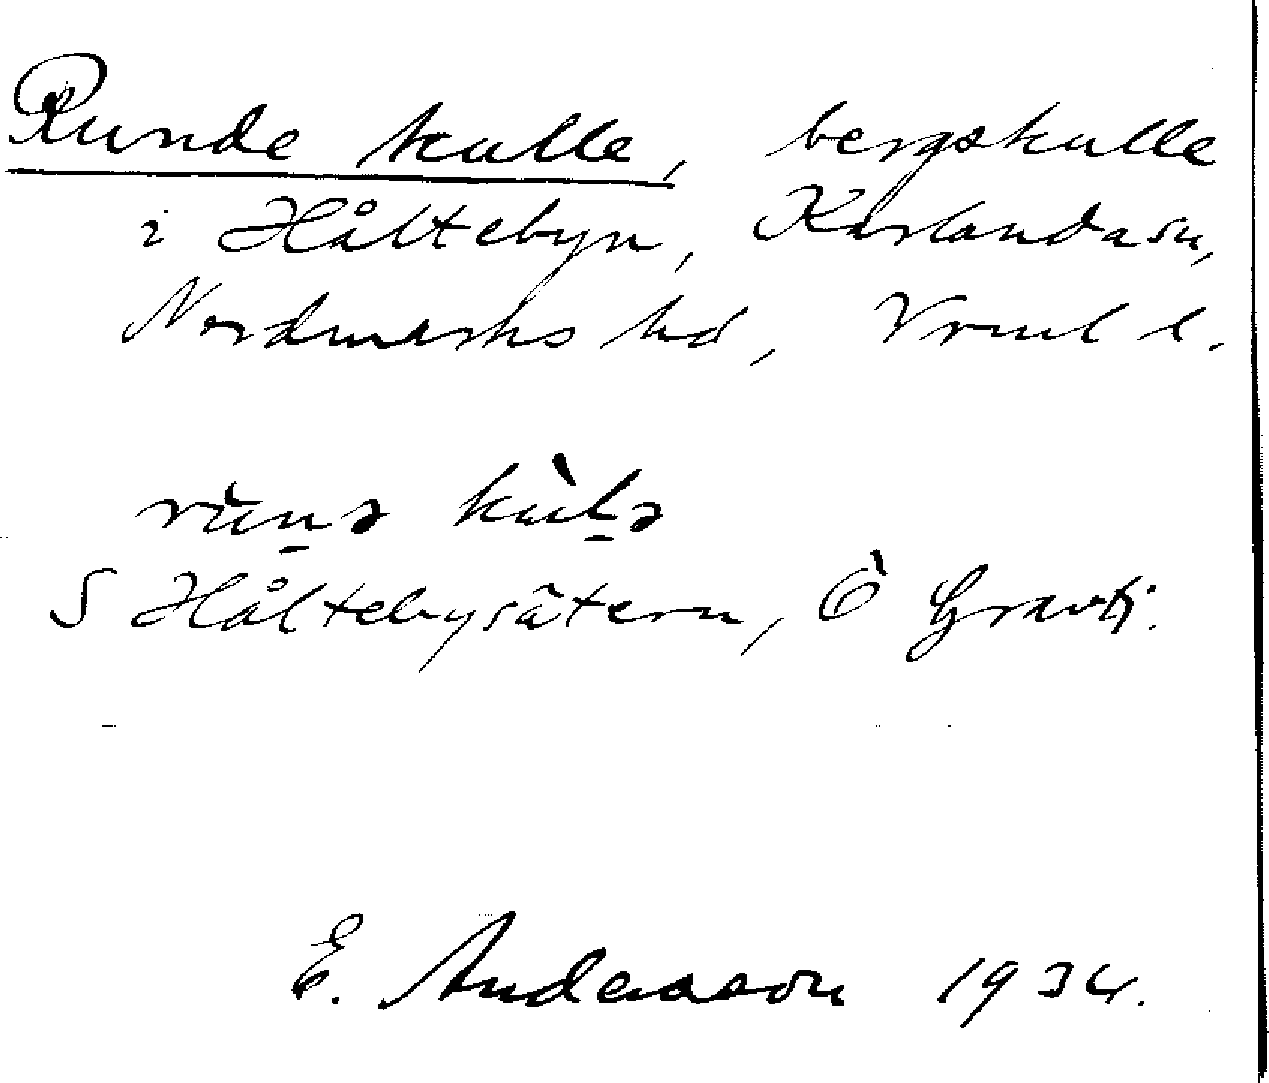 Runde kulle, bergskulle
i Håltebyn, Karlanda sn,
Nordmarks hd, Vrml l.
rùn̠ə kùl̠ə
S Håltebysätern, Ö
E. Andersson 1934.